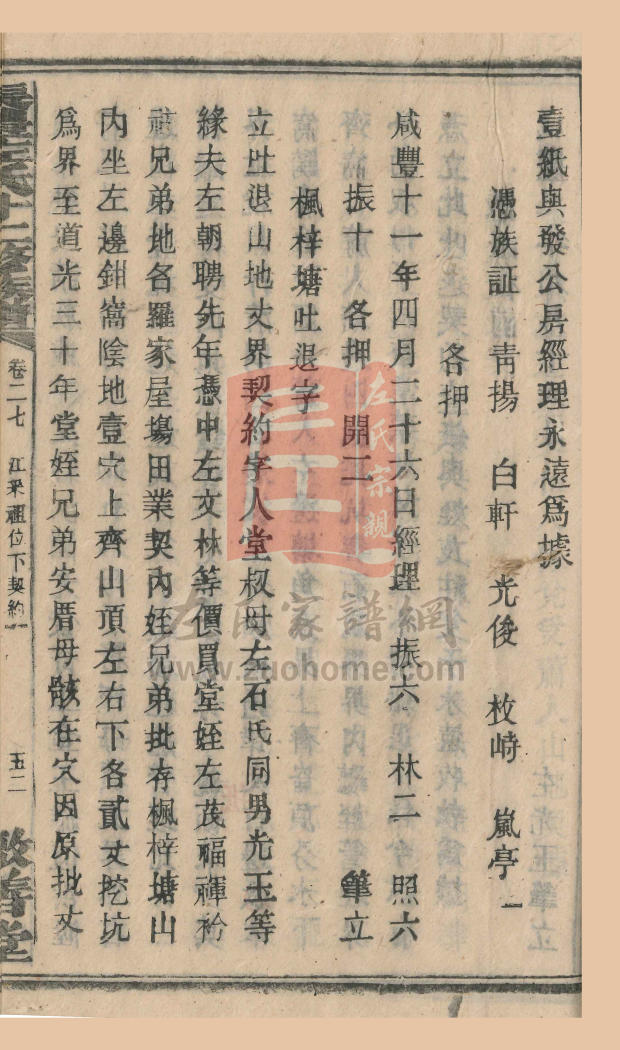 壹紙與發公房經理永遠爲據
憑族証 青揚 白軒 光俊 枚崎 嵐亭 一
各押
咸豐十一年四月二十六日經理 振六 林二 照六
振十 各押 開二 筆立
楓梓塘吐退字
立吐退山地丈界契約字人堂叔母左石氏同男光玉等
緣夫左朝聘先年憑中左文林等價買堂姪左茂福禪衿
祺兄弟地名羅家屋塲田業契內姪兄弟批存楓梓塘山
內坐左邊鉗嵩陰地壹穴上齊山頂左右下各貳丈挖坑
爲界至道光三十年堂姪兄弟安厝母骸在穴因原批丈
十二修族譜
卷二七 江釆祖位下契約
五二
敬善堂
左氏宗親
左氏家譜網
www.zuohome.com